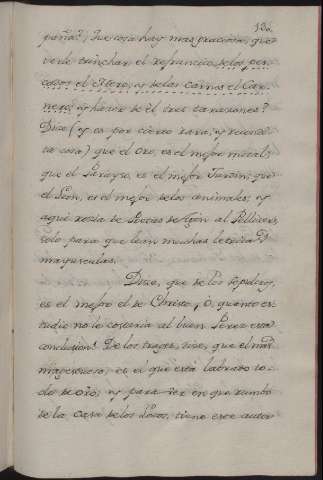 130.
paña?, Que cosa hay mas graciosa, que
verle trinchar el refrancico, de los pes-
cados el Mero, y de las carnes el Car-
nero, y hacer de él tres tarazones?
Dice (y es por cierto rara, y recondi-
ta cosa) que el Oro, es el mejor metal;
que el Parayso, es el mejor Jardin; que
el Leon, es el mejor de los animales; y
aqui
solo para que lean muchas letras
mayusculas.
Dice, que de los Sepulcros,
es el mejor el de Christo. O, quanto es-
tudio no le costaria al buen Perez esta
conclusion! De los trages, dice, que el mas
magestuoso, es el que está labrado to-
do de oro; y para ver en que rumbo
de la Casa de los Locos, tiene este autor